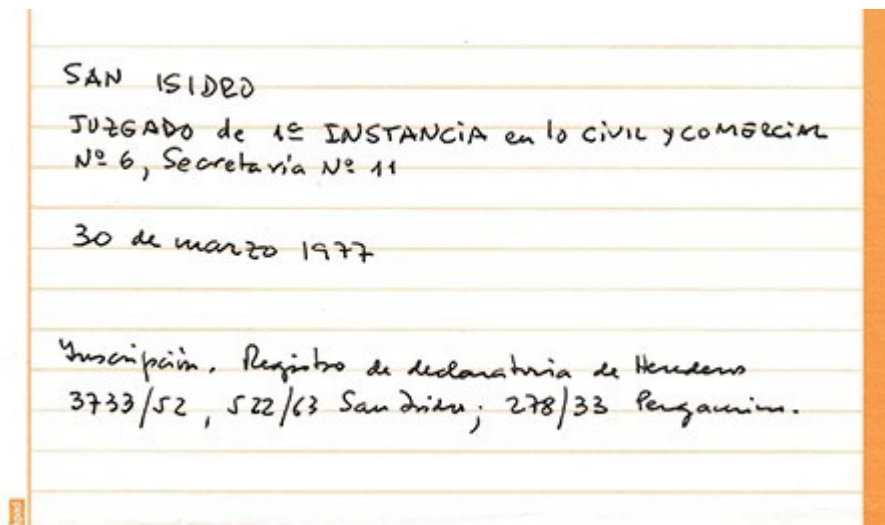 SAN ISIDRO
JUZGADO de 1ª INSTANCIA en lo CIVIL y COMERCIAL
Nº 6, Secretaría Nº 11
30 de marzo 1977
Inscripción. Registro de declaratoria de Herederos
3733/52, 522/63 San Isidro; 278/33 Pergamino.